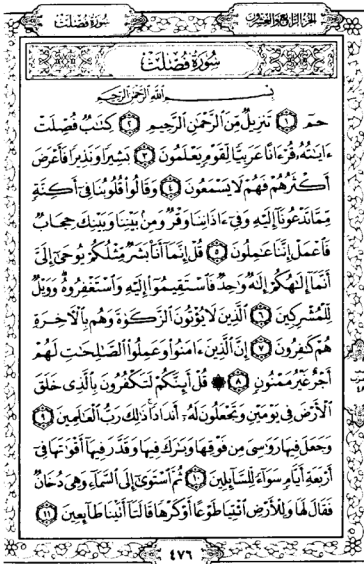 الجُزْءُ الرَّابِعُ وَالْعِشْرُونَ سُورَةُ فُصِّلَتْ
سُورَةُ فُصِّلَتْ
بِسْمِ اللَّهِ الرَّحْمَٰنِ الرَّحِيمِ
حمٓ ﴿١﴾ تَنزِيلٌ مِّنَ ٱلرَّحْمَٰنِ ٱلرَّحِيمِ ﴿٢﴾ كِتَٰبٌ فُصِّلَتْ
ءَايَٰتُهُۥ قُرْءَانًا عَرَبِيًّا لِّقَوْمٍ يَعْلَمُونَ ﴿٣﴾ بَشِيرًا وَنَذِيرًا فَأَعْرَضَ
أَكْثَرُهُمْ فَهُمْ لَا يَسْمَعُونَ ﴿٤﴾ وَقَالُوا۟ قُلُوبُنَا فِىٓ أَكِنَّةٍ
مِّمَّا تَدْعُونَآ إِلَيْهِ وَفِىٓ ءَاذَانِنَا وَقْرٌ وَمِنۢ بَيْنِنَا وَبَيْنِكَ حِجَابٌ
فَٱعْمَلْ إِنَّنَا عَٰمِلُونَ ﴿٥﴾ قُلْ إِنَّمَآ أَنَا۠ بَشَرٌ مِّثْلُكُمْ يُوحَىٰٓ إِلَىَّ
أَنَّمَآ إِلَٰهُكُمْ إِلَٰهٌ وَٰحِدٌ فَٱسْتَقِيمُوٓا۟ إِلَيْهِ وَٱسْتَغْفِرُوهُ وَوَيْلٌ
لِّلْمُشْرِكِينَ ﴿٦﴾ ٱلَّذِينَ لَا يُؤْتُونَ ٱلزَّكَوٰةَ وَهُم بِٱلْءَاخِرَةِ
هُمْ كَٰفِرُونَ ﴿٧﴾ إِنَّ ٱلَّذِينَ ءَامَنُوا۟ وَعَمِلُوا۟ ٱلصَّٰلِحَٰتِ لَهُمْ
أَجْرٌ غَيْرُ مَمْنُونٍ ﴿٨﴾ ۞ قُلْ أَئِنَّكُمْ لَتَكْفُرُونَ بِٱلَّذِى خَلَقَ
ٱلْأَرْضَ فِى يَوْمَيْنِ وَتَجْعَلُونَ لَهُۥٓ أَندَادًا ذَٰلِكَ رَبُّ ٱلْعَٰلَمِينَ ﴿٩﴾
وَجَعَلَ فِيهَا رَوَٰسِىَ مِن فَوْقِهَا وَبَٰرَكَ فِيهَا وَقَدَّرَ فِيهَآ أَقْوَٰتَهَا فِىٓ
أَرْبَعَةِ أَيَّامٍ سَوَآءً لِّلسَّآئِلِينَ ﴿١٠﴾ ثُمَّ ٱسْتَوَىٰٓ إِلَى ٱلسَّمَآءِ وَهِىَ دُخَانٌ
فَقَالَ لَهَا وَلِلْأَرْضِ ٱئْتِيَا طَوْعًا أَوْ كَرْهًا قَالَتَآ أَتَيْنَا طَآئِعِينَ ﴿١١﴾
٤٧٦